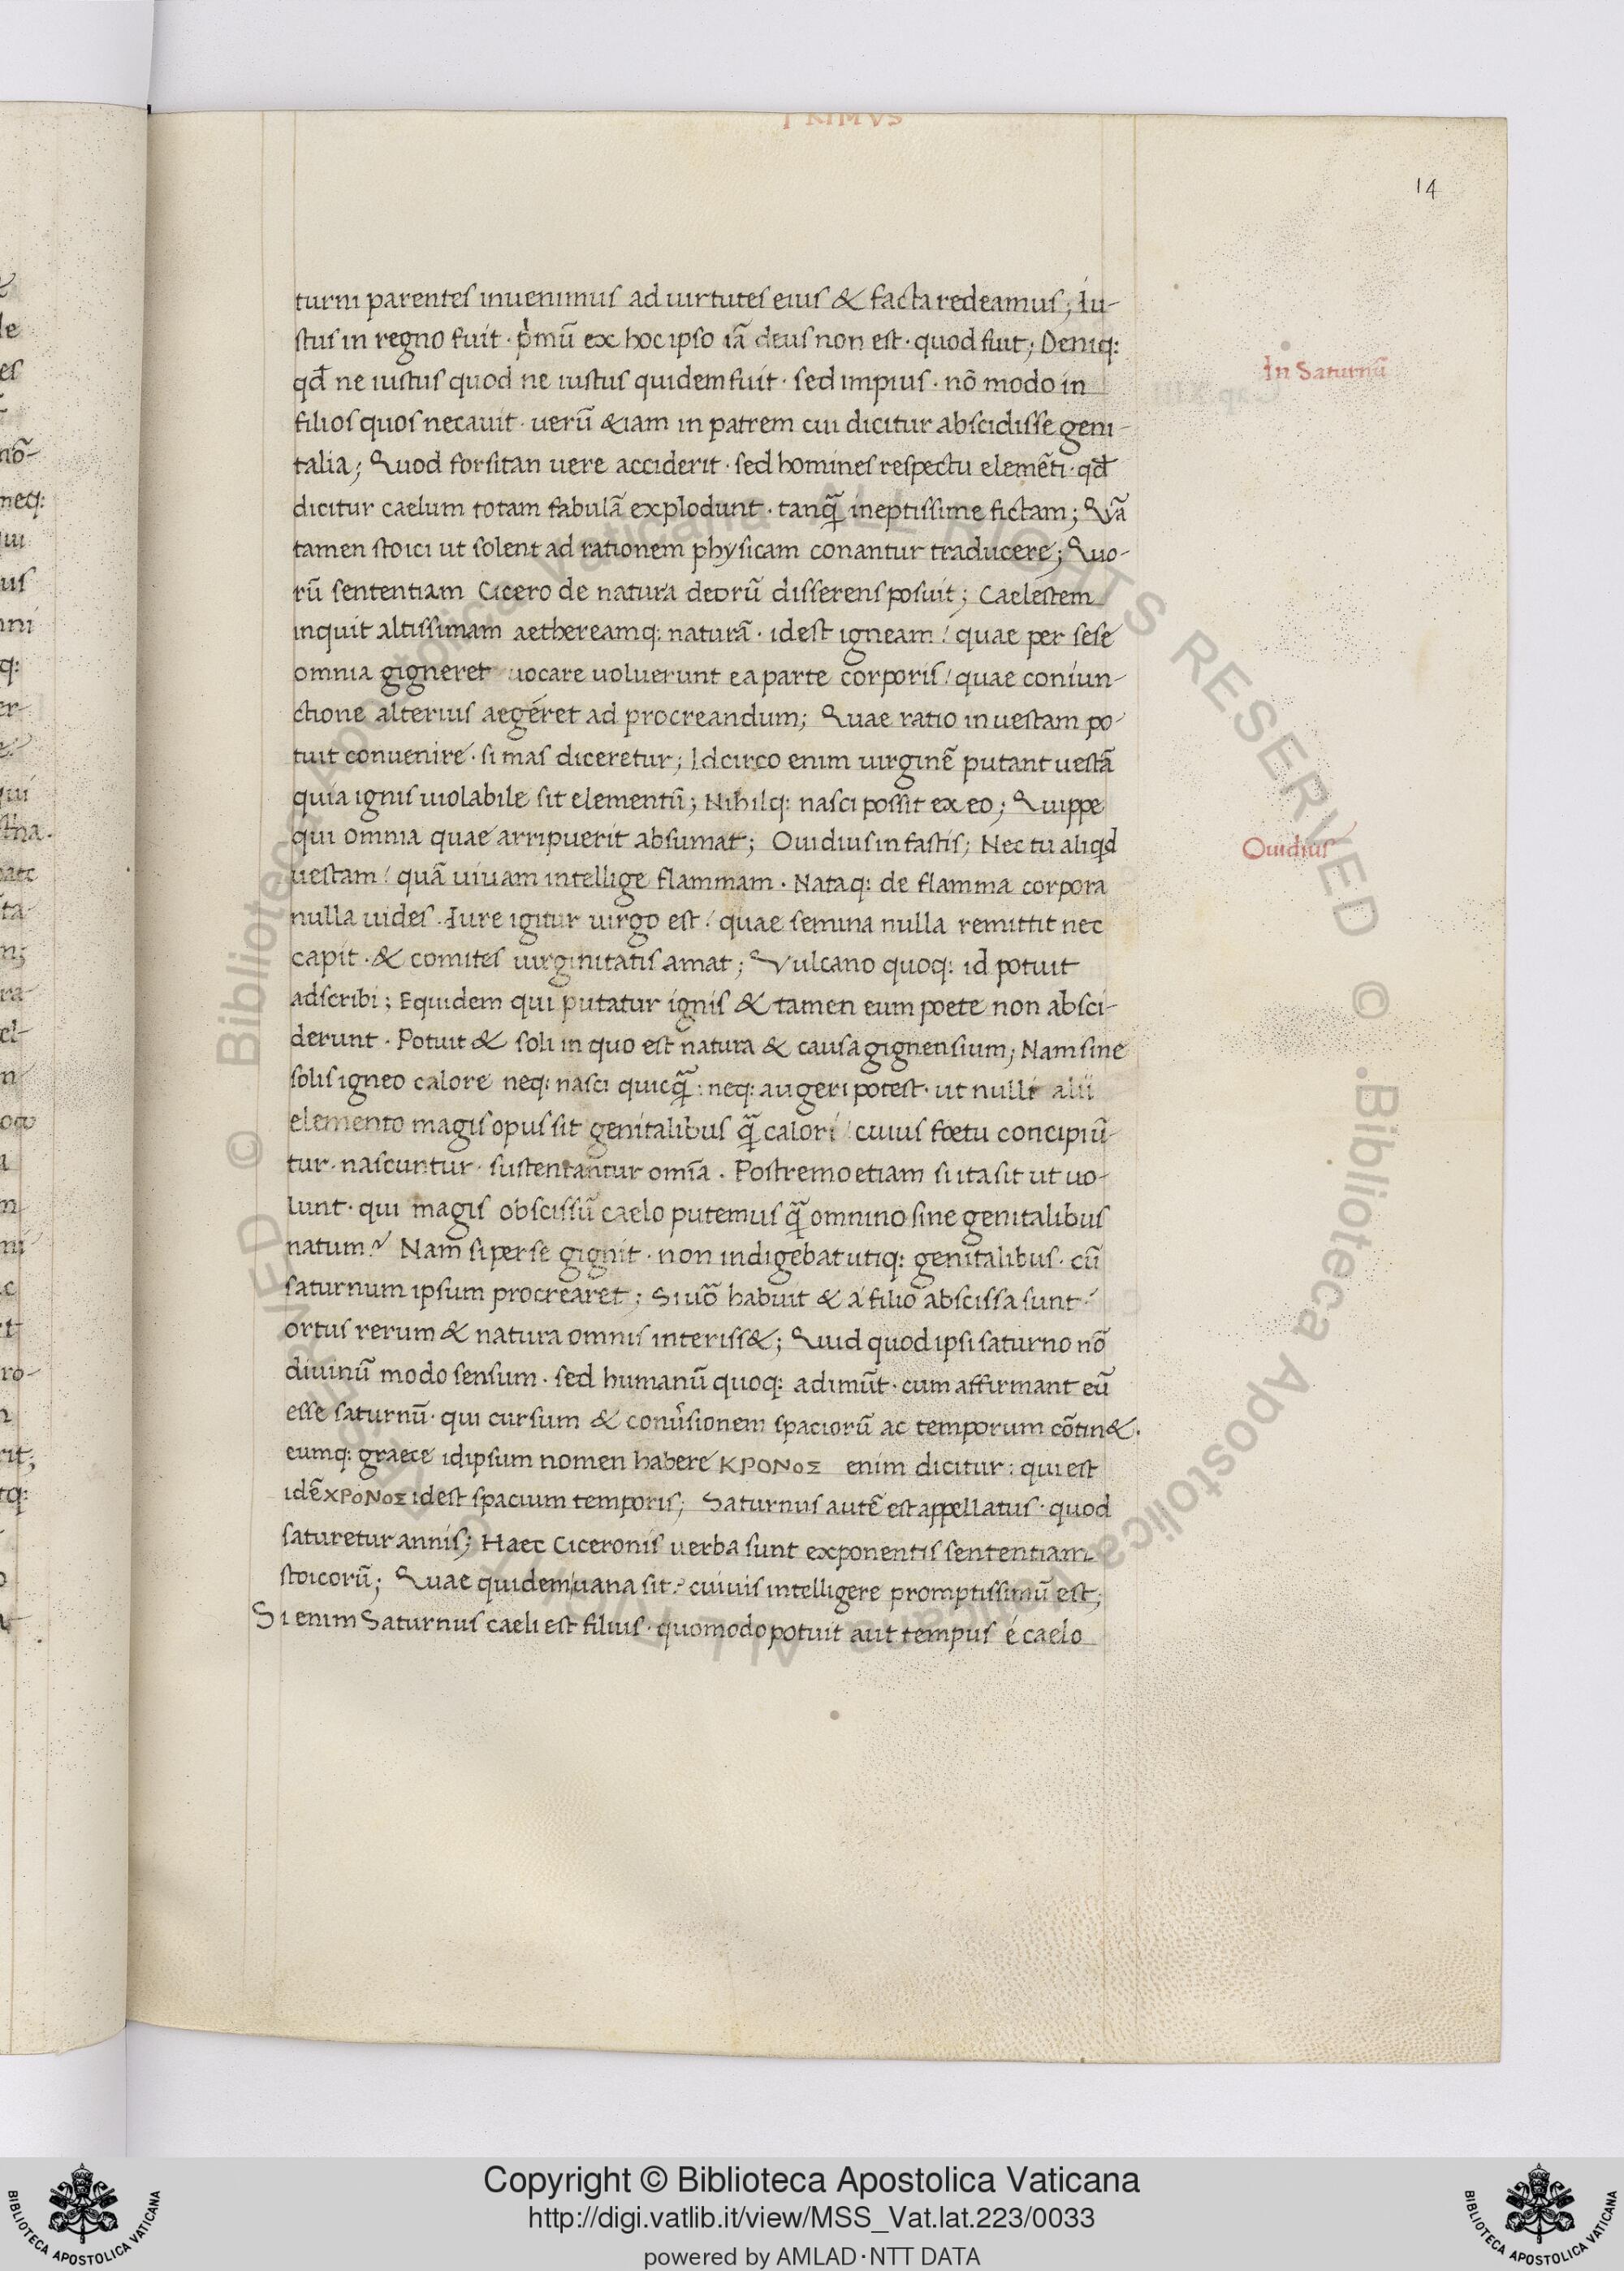 PRIMVS
14
turni parentes inuenimus ad uirtutes eius & facta redeamus; Iu-
stus in regno fuit · pͥmū ex hoc ipso iā deus non est · quod fuit; Deniq:
qđ ne iustus quod ne iustus quidem fuit · sed impius · nō modo in
In Saturnū
filios quos necauit · uerū &iam in patrem cui dicitur abscidisse geni-
talia; Quod forsitan uere acciderit · sed homines respectu elemēti · qđ
dicitur caelum totam fabulā explodunt · tanq̃ ineptissime fictam; Quā
tamen stoici ut solent ad rationem physicam conantur traducere; Quo-
rū sententiam Cicero de natura deorū disserens posuit; Caelestem
inquit altissimam aethereamq: naturā · idest igneam / quae per sese
omnia gigneret uocare uoluerunt ea parte corporis / quae coniun-
ctione alterius aegéret ad procreandum; Quae ratio in uestam po-
tuit conuenire · si mas diceretur; Idcirco enim uirginē putant uestā
quia ignis uiolabile sit elementū; Nihilq: nasci possit ex eo; Quippe
qui omnia quae arripuerit absumat; Ouidius in fastis; Nec tu aliqđ
Ouidius
uestam / quā uiuam intellige flammam · Nataq: de flamma corpora
nulla uides · Iure igitur uirgo est / quae semina nulla remittit nec
capit · & comites uirginitatis amat; Vulcano quoq: id potuit
adscribi; Equidem qui putatur ignis & tamen eum poete non absci-
derunt · Potuit & soli in quo est natura & causa gignensium; Nam sine
solis igneo calore neq: nasci quicq̃ : neq: augeri potest · ut nulli alii
elemento magis opus sit genitalibus q̃ calori / cuius foetu concipiū-
tur · nascuntur · sustentantur omīa · Postremo etiam si ita sit ut uo-
lunt · qui magis obscissū caelo putemus q̃ omnino sine genitalibus
natum? Nam si per se gignit · non indigebat utiq: genitalibus · cū
saturnum ipsum procrearet; Si uō habuit & a filio abscissa sunt /
ortus rerum & natura omnis interiss&; Quid quod ipsi saturno nō
diuinū modo sensum · sed humanū quoq: adimūt · cum affirmant eū
esse saturnū · qui cursum & conūsionem spaciorū ac temporum cōtin& ·
eumq: graece idipsum nomen habere ΚΡΟΝΟΣ enim dicitur : qui est
idē ΧΡΟΝΟΣ idest spacium temporis; Saturnus autē est appellatus · quod
saturetur annis; Haec Ciceronis uerba sunt exponentis sententiam
stoicorū; Quae quidem uana sit / cuiuis intelligere promptissimū est;
Si enim Saturnus caeli est filius · quomodo potuit aut tempus é caelo
Copyright © Biblioteca Apostolica Vaticana
http://digi.vatlib.it/view/MSS_Vat.lat.223/0033
powered by AMLAD·NTT DATA
BIBLIOTECA APOSTOLICA VATICANA
BIBLIOTECA APOSTOLICA VATICANA
© Biblioteca Apostolica Vaticana ALL RIGHTS RESERVED
© Biblioteca Apostolica Vaticana ALL RIGHTS RESERVED